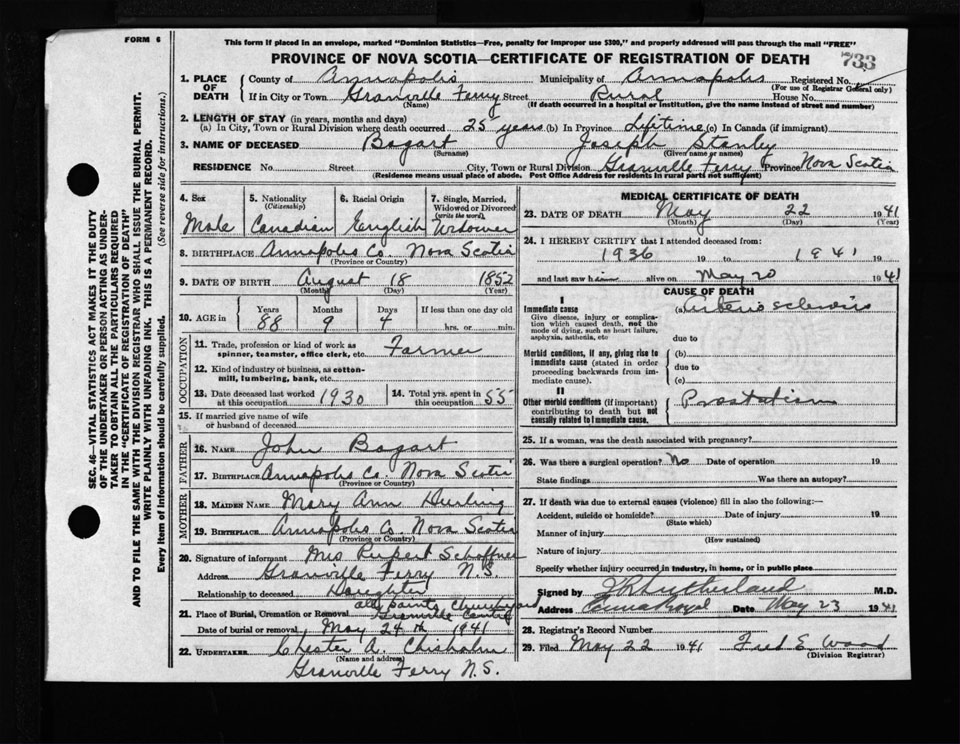 FORM 6
This form if placed in an envelope, marked "Dominion Statistics—Free, penalty for improper use $300," and properly addressed will pass through the mail "FREE"
PROVINCE OF NOVA SCOTIA—CERTIFICATE OF REGISTRATION OF DEATH
733
1. PLACE OF DEATH County of Annapolis Municipality of Annapolis Registered No.
(For use of Registrar General only)
If in City or Town Granville Ferry Street Rural House No.
(Name) (If death occurred in a hospital or institution, give the name instead of street and number)
2. LENGTH OF STAY (in years, months and days)
(a) In City, Town or Rural Division where death occurred 25 years (b) In Province Lifetime (c) In Canada (if immigrant)
3. NAME OF DECEASED Bogart Joseph Stanley
(Surname) (Given name or names)
RESIDENCE No. Street City, Town or Rural Division Granville Ferry Province Nova Scotia
(Residence means usual place of abode. Post Office Address for residents in rural parts not sufficient)
4. Sex 5. Nationality (Citizenship) 6. Racial Origin 7. Single, Married, Widowed or Divorced (write the word)
Male Canadian English Widower
8. BIRTHPLACE Annapolis Co. Nova Scotia
(Province or Country)
9. DATE OF BIRTH August 18 1852
(Month) (Day) (Year)
10. AGE in Years Months Days If less than one day old
88 9 4 hrs. or min.
OCCUPATION
11. Trade, profession or kind of work as spinner, teamster, office clerk, etc. Farmer
12. Kind of industry or business, as cotton-mill, lumbering, bank, etc.
13. Date deceased last worked at this occupation 1930 14. Total yrs. spent in this occupation 55
15. If married give name of wife or husband of deceased
FATHER
16. NAME John Bogart
17. BIRTHPLACE Annapolis Co. Nova Scotia
(Province or Country)
MOTHER
18. MAIDEN NAME Mary Ann
19. BIRTHPLACE Annapolis Co. Nova Scotia
(Province or Country)
20. Signature of informant Mrs Rupert Schaffner
Address Granville Ferry N.S.
Relationship to deceased Daughter
All Saints Churchyard
21. Place of Burial, Cremation or Removal Granville Centre
Date of burial or removal May 24th 1941
22. UNDERTAKER Chester A. Chisholm
(Name and address)
Granville Ferry N.S.
MEDICAL CERTIFICATE OF DEATH
23. DATE OF DEATH May 22 1941
(Month) (Day) (Year)
24. I HEREBY CERTIFY that I attended deceased from:
1936 19 to 1941 19
and last saw him alive on May 20 1941
CAUSE OF DEATH
I
Immediate cause (a) Arterio sclerosis
Give disease, injury or complication which caused death, not the mode of dying, such as heart failure, asphyxia, asthenia, etc
due to
Morbid conditions, if any, giving rise to immediate cause (stated in order proceeding backwards from immediate cause).
(b)
due to
(c)
II
Other morbid conditions (if important) contributing to death but not causally related to immediate cause.
25. If a woman, was the death associated with pregnancy?
26. Was there a surgical operation? No Date of operation 19
State findings Was there an autopsy?
27. If death was due to external causes (violence) fill in also the following:—
Accident, suicide or homicide? Date of injury 19
(State which)
Manner of injury
(How sustained)
Nature of injury
Specify whether injury occurred in industry, in home, or in public place
Signed by M.D.
Address Date May 23 1941
28. Registrar's Record Number
29. Filed May 22 1941 Fred E. Wood
(Division Registrar)
SEC. 46—VITAL STATISTICS ACT MAKES IT THE DUTY
OF THE UNDERTAKER OR PERSON ACTING AS UNDER-
TAKER TO OBTAIN ALL THE PARTICULARS REQUIRED
IN THE "CERTIFICATE OF REGISTRATION OF DEATH"
AND TO FILE THE SAME WITH THE DIVISION REGISTRAR WHO SHALL ISSUE THE BURIAL PERMIT.
WRITE PLAINLY WITH UNFADING INK. THIS IS A PERMANENT RECORD.
Every item of information should be carefully supplied. (See reverse side for instructions.)